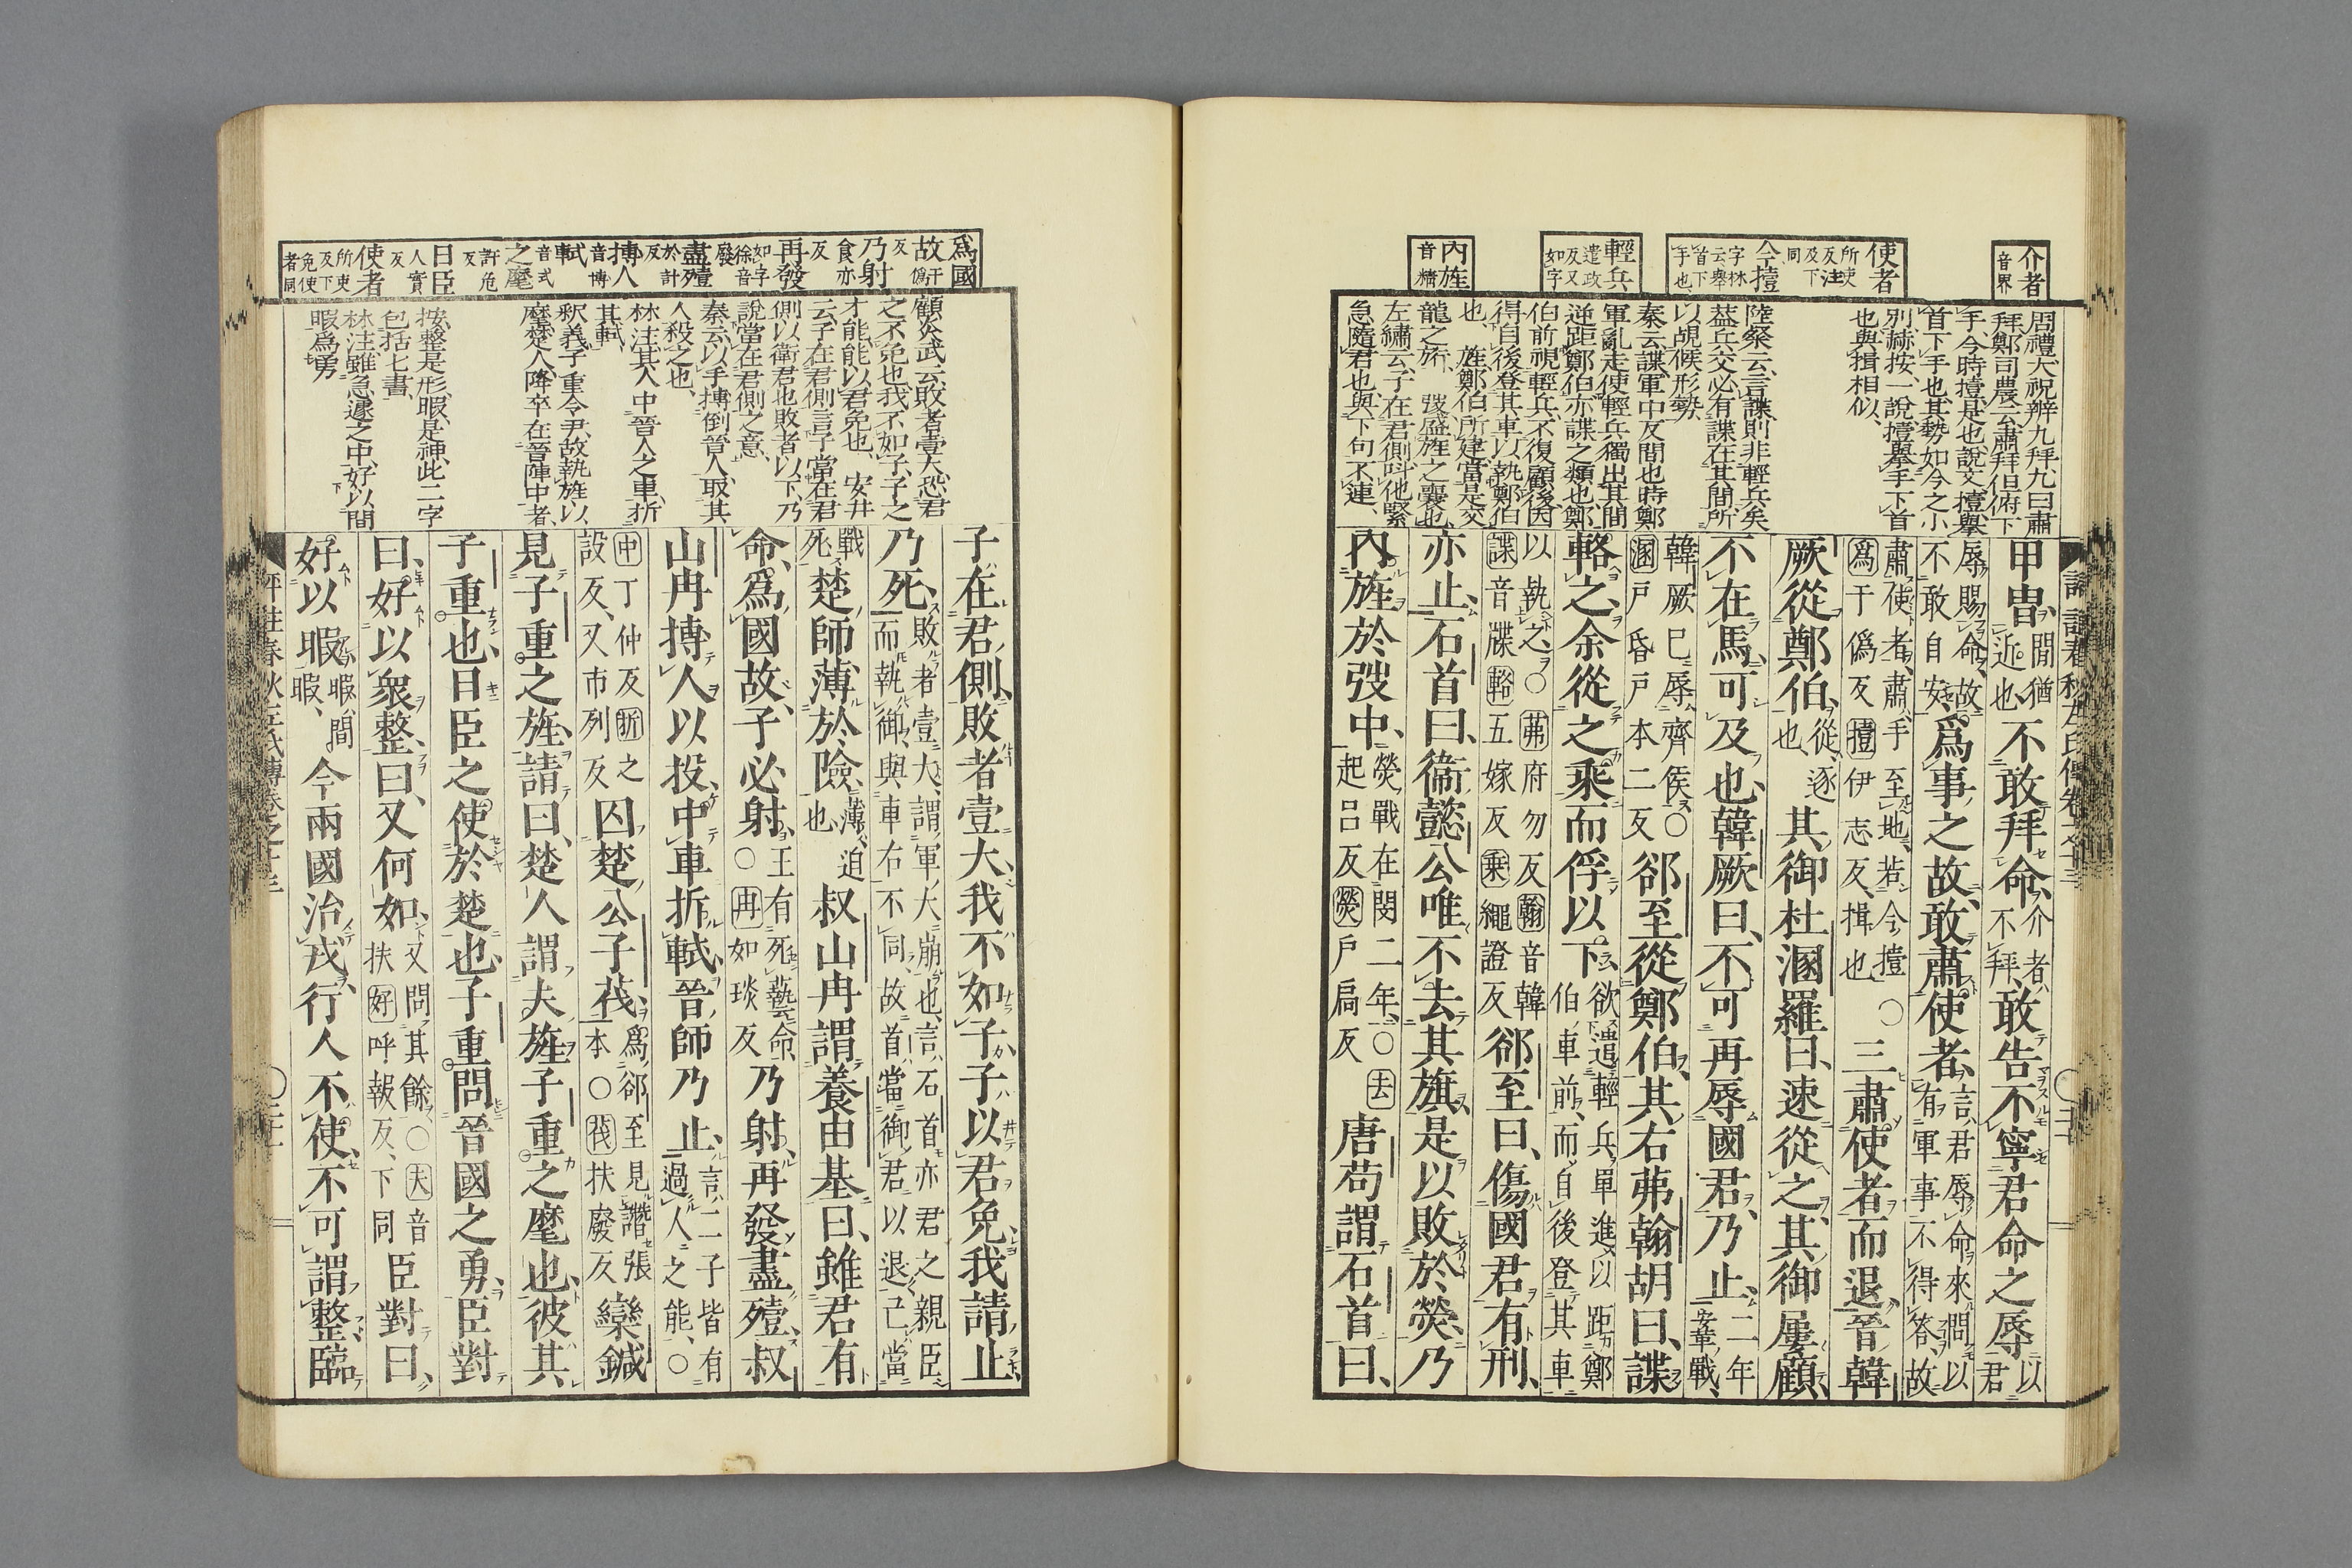 介者
音界
使者
所使反注及下同
今撎
字林云舉首下手也
輕兵
遣政反又如字
內旌
音精
周禮大祝辨九拜九曰肅
拜鄭司農云肅拜但俯下
手、今時撎是也説文撎舉
首下手也、其勢如今之小
別赫按、一説撎擧手下首
也與揖相似、
陸粲云、言諜則非輕兵矣
葢兵交必有諜在其間、所
以覘候形勢、
秦云諜軍中反間也時鄭
軍亂走使輕兵獨出其間
逆距鄭伯亦諜之類也鄭
伯前視輕兵、不復顧後因
得自後登其車以執鄭伯
也、 旌鄭伯所建、當是交
龍之旂、 弢盛旌之囊也
左繡云、子在君側呌他緊
急隨君也、與下句不連、
甲冑、間猶近也不敢拜命、介者不拜、敢告不寧君命之辱以君
辱賜命、故不敢自安、爲事之故、敢肅使者、言君辱命來問以有軍事不得答、故
肅使者、肅、手至地、若今撎〇爲于僞反撎伊志反、揖也三肅使者而退、晉韓
厥從鄭伯、從、逐也其御杜溷羅曰、速從之、其御屢顧、
不在馬、可及也、韓厥曰、不可再辱國君、乃止、二年鞌戰、
韓厥已辱齊侯〇溷戸昏戸本二反郤至從鄭伯、其右茀翰胡曰、諜
輅之、余從之乘而俘以下、欲遣輕兵單進以距鄭伯車前、而自後登其車
以執之、〇茀府勿反翰音韓諜音牒輅五嫁反乘繩證反郤至曰、傷國君有刑、
亦止、石首曰、衞懿公唯不去其旗、是以敗於熒、乃
內旌於弢中、熒戰在閔二年、〇去起呂反熒戸扃反唐苟謂石首曰、
爲國
故于僞反
乃射
食亦反
再發
如字徐音廢
盡殪
於計反
搏人
音博
軾
音式
之麾
許危反
日臣
人實反
使者
所吏反下免使者同
顧炎武云、敗者壹大、恐君
之不免也、我不如子、子之
才能、能以君免也、 安井
云子在君側言子當在君
側以衛君也敗者以下、乃
説當在君側之意、
秦云以手搏倒晉人、取其
人殺之也、
林注其人中晉人之車、折
其軾、
釋義子重令尹、故執旌以
麾楚人、降卒在晉陣中者、
按整是形、暇是神、此二字
包括七書、
林注、雖急遽之中、好以間
暇爲勇
子在君側、敗者壹大、我不如子、子以君免、我請止
乃死、敗者壹大、謂軍大崩也、言石首亦君之親臣而執御、與車右不同、故首當御君以退、己當
戰死、楚師薄於險、薄、迫也叔山冉謂養由基曰、雖君有
命、爲國故、子必射、王有死藝命、〇再如琰反乃射、再發盡殪、叔
山冉搏人以投、中車折軾、晉師乃止、言二子皆有過人之能、〇
中丁仲反折之設反、又市列反囚楚公子茷、爲郤至見譖張本〇茷扶廢反欒鍼
見子重之旌、請曰、楚人謂夫旌子重之麾也、彼其
子重也、日臣之使於楚也、子重問晉國之勇、臣對
曰、好以衆整、曰、又何如、又問其餘、〇夫音扶好呼報反、下同臣對曰、
好以暇、暇、間暇、今兩國治戎、行人不使、不可謂整、臨